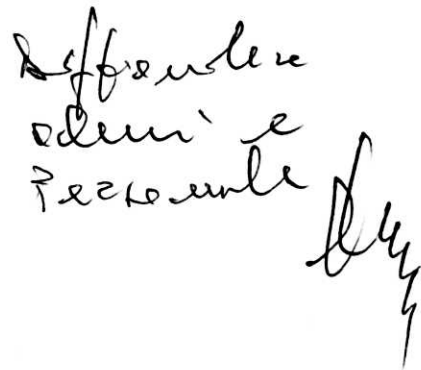 Diffondere
alunni e
Personale